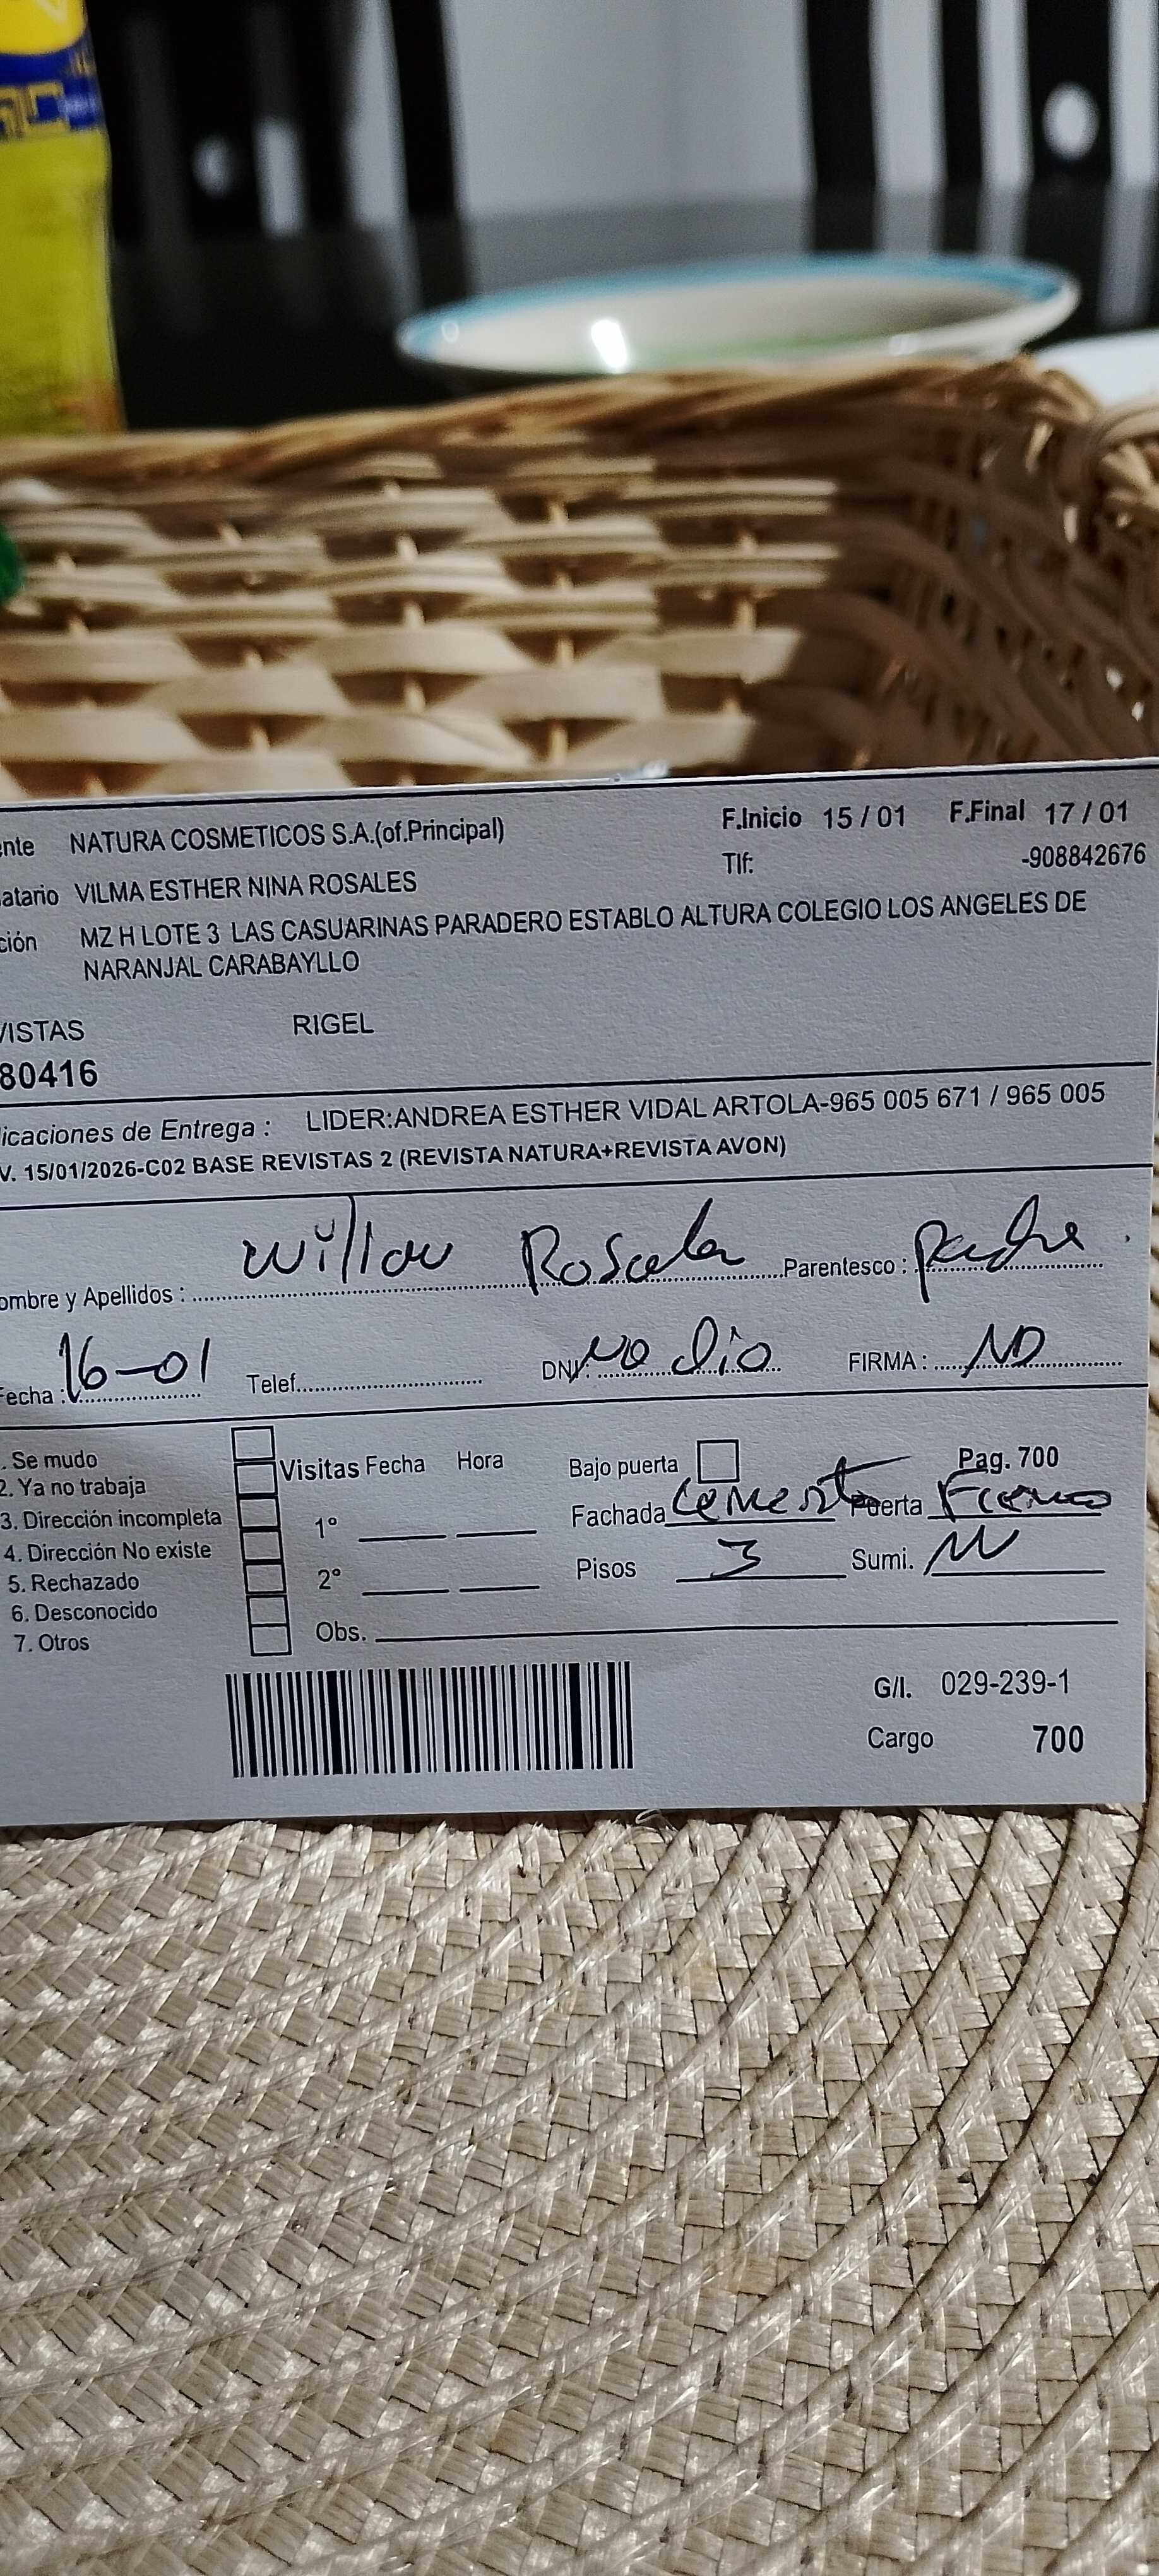 ente NATURA COSMETICOS S.A.(of.Principal) F.Inicio 15 / 01 F.Final 17 / 01
Tlf: -908842676
atario VILMA ESTHER NINA ROSALES
ción MZ H LOTE 3 LAS CASUARINAS PARADERO ESTABLO ALTURA COLEGIO LOS ANGELES DE
NARANJAL CARABAYLLO
VISTAS RIGEL
80416
licaciones de Entrega : LIDER:ANDREA ESTHER VIDAL ARTOLA-965 005 671 / 965 005
V. 15/01/2026-C02 BASE REVISTAS 2 (REVISTA NATURA+REVISTA AVON)
ombre y Apellidos : Rosales Parentesco : padre
Fecha : 16-01 Telef. DNI: NO dio FIRMA :
. Se mudo
2. Ya no trabaja Visitas Fecha Hora Bajo puerta Pag. 700
3. Dirección incompleta 1° Fachada cemento Puerta Fierro
4. Dirección No existe
5. Rechazado 2° Pisos 3 Sumi.
6. Desconocido
7. Otros Obs.
G/I. 029-239-1
Cargo 700